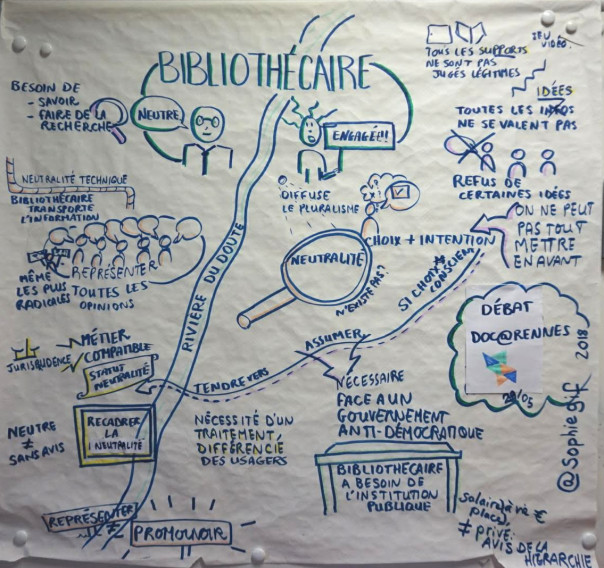 BIBLIOTHÉCAIRE
BESOIN DE
- SAVOIR
- FAIRE DE LA
RECHERCHE
NEUTRE
ENGAGÉE!!!
TOUS LES SUPPORTS
NE SONT PAS
JUGÉS LÉGITIMES
JEU
VIDÉO
IDÉES
TOUTES LES INFOS
NE SE VALENT PAS
REFUS DE
CERTAINES IDÉES
ON NE PEUT
PAS TOUT
METTRE
EN AVANT
NEUTRALITÉ TECHNIQUE
BIBLIOTHÉCAIRE
TRANSPORTE
L'INFORMATION
REPRÉSENTER
TOUTES LES
OPINIONS
MÊME
LES PLUS
RADICALES
RIVIÈRE DU DOUTE
DIFFUSE
LE PLURALISME
NEUTRALITÉ
N'EXISTE PAS?
CHOIX + INTENTION
SI CHOIX
CONSCIENT
ASSUMER
TENDRE VERS
DÉBAT
DOC@RENNES
2018
@Sophiegif
JURISPRUDENCE
MÉTIER
COMPATIBLE
STATUS
NEUTRALITÉ
NÉCESSAIRE
FACE A UN
GOUVERNEMENT
ANTI-DÉMOCRATIQUE
NEUTRE
≠
SANS AVIS
RECADRER
LA
NEUTRALITÉ
NÉCESSITÉ D'UN
TRAITEMENT
DIFFÉRENCIÉ
DES USAGERS
BIBLIOTHÉCAIRE
A BESOIN DE
L'INSTITUTION
PUBLIQUE
REPRÉSENTER
≠
PROMOUVOIR
≠ privé
AVIS DE LA
HIÉRARCHIE